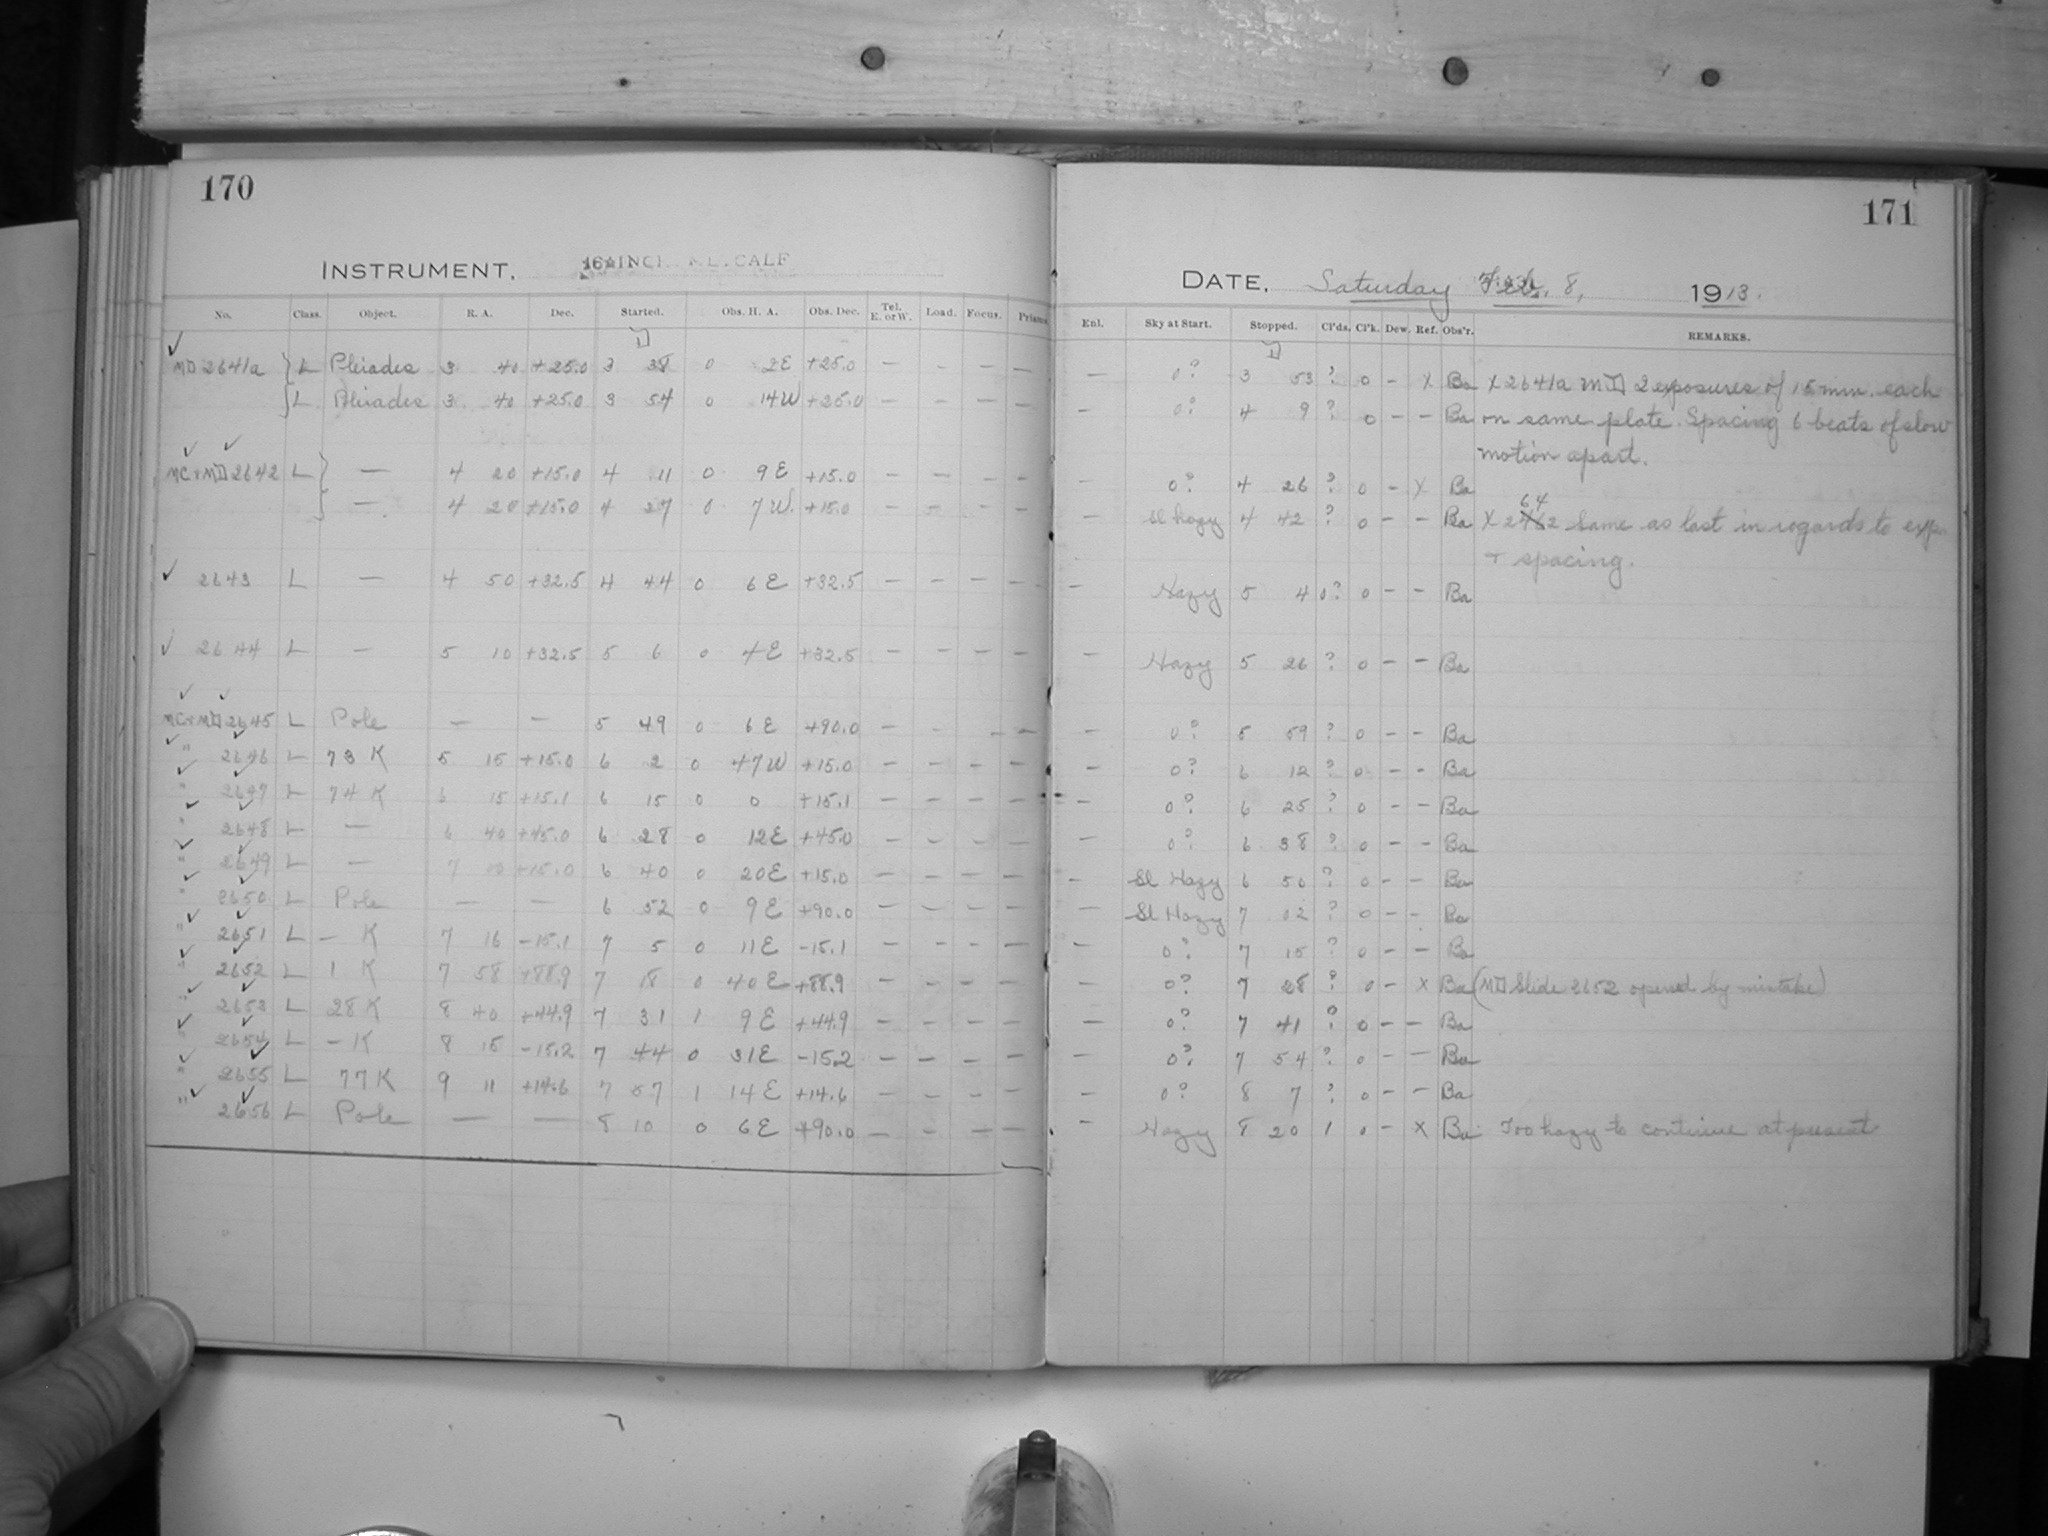 170
INSTRUMENT. 16 INCH METCALF
No. Class. Object. R. A. Dec. Started. Obs. H. A. Obs. Dec. Tel. E. or W. Load. Focus. Prisms
MD 2641a L Pleiades 3 40 +25.0 3 38 0 2E +25.0 — — — —
L Pleiades 3 40 +25.0 3 54 0 14W +25.0 — — — —
MC+MD 2642 L — 4 20 +15.0 4 11 0 9E +15.0 — — — —
— 4 20 +15.0 4 27 0 7W. +15.0 — — — —
2643 L — 4 50 +32.5 4 44 0 6E +32.5 — — — —
2644 L — 5 10 +32.5 5 6 0 4E +32.5 — — — —
MC+MD 2645 L Pole — — 5 49 0 6E +90.0 — — — —
" 2646 L 73 K 5 15 +15.0 6 2 0 47W +15.0 — — — —
" 2647 L 74 K 6 15 +15.1 6 15 0 0 +15.1 — — — —
" 2648 L — 6 40 +45.0 6 28 0 12E +45.0 — — — —
" 2649 L — 7 +15.0 6 40 0 20E +15.0 — — — —
" 2650 L Pole — — 6 52 0 9E +90.0 — — — —
" 2651 L — K 7 16 -15.1 7 5 0 11E -15.1 — — — —
" 2652 L 1 K 7 58 +88.9 7 18 0 40E +88.9 — — — —
" 2653 L 28 K 8 40 +44.9 7 31 1 9E +44.9 — — — —
" 2654 L — K 8 15 -15.2 7 44 0 31E -15.2 — — — —
" 2655 L 77 K 9 11 +14.6 7 57 1 14E +14.6 — — — —
" 2656 L Pole — — 8 10 0 6E +90.0 — — — —
171
DATE. Saturday Feb. 8, 1913.
Enl. Sky at Start. Stopped. Cl'ds. Cl'k. Dew. Ref. Obs'r. REMARKS.
— 0? 3 53 ? 0 — X Ba X 2641a MD 2 exposures of 15 min. each
— 0? 4 9 ? 0 — — Ba on same plate. Spacing 6 beats of slow
motion apart.
— 0? 4 26 ? 0 — X Ba
64
— Sl hazy 4 42 ? 0 — — Ba X 2442 Same as last in regards to expo
+ spacing.
— Hazy 5 4 0? 0 — — Ba
— Hazy 5 26 ? 0 — — Ba
— 0? 5 59 ? 0 — — Ba
— 0? 6 12 ? 0 — — Ba
— 0? 6 25 ? 0 — — Ba
— 0? 6 38 ? 0 — — Ba
— Sl Hazy 6 50 ? 0 — — Ba
— Sl Hazy 7 02 ? 0 — — Ba
— 0? 7 15 ? 0 — — Ba
— 0? 7 28 ? 0 — X Ba (MD Slide 2652 opened by mistake)
— 0? 7 41 ? 0 — — Ba
— 0? 7 54 ? 0 — — Ba
— 0? 8 7 ? 0 — — Ba
— Hazy 8 20 1 0 — X Ba Too hazy to continue at present